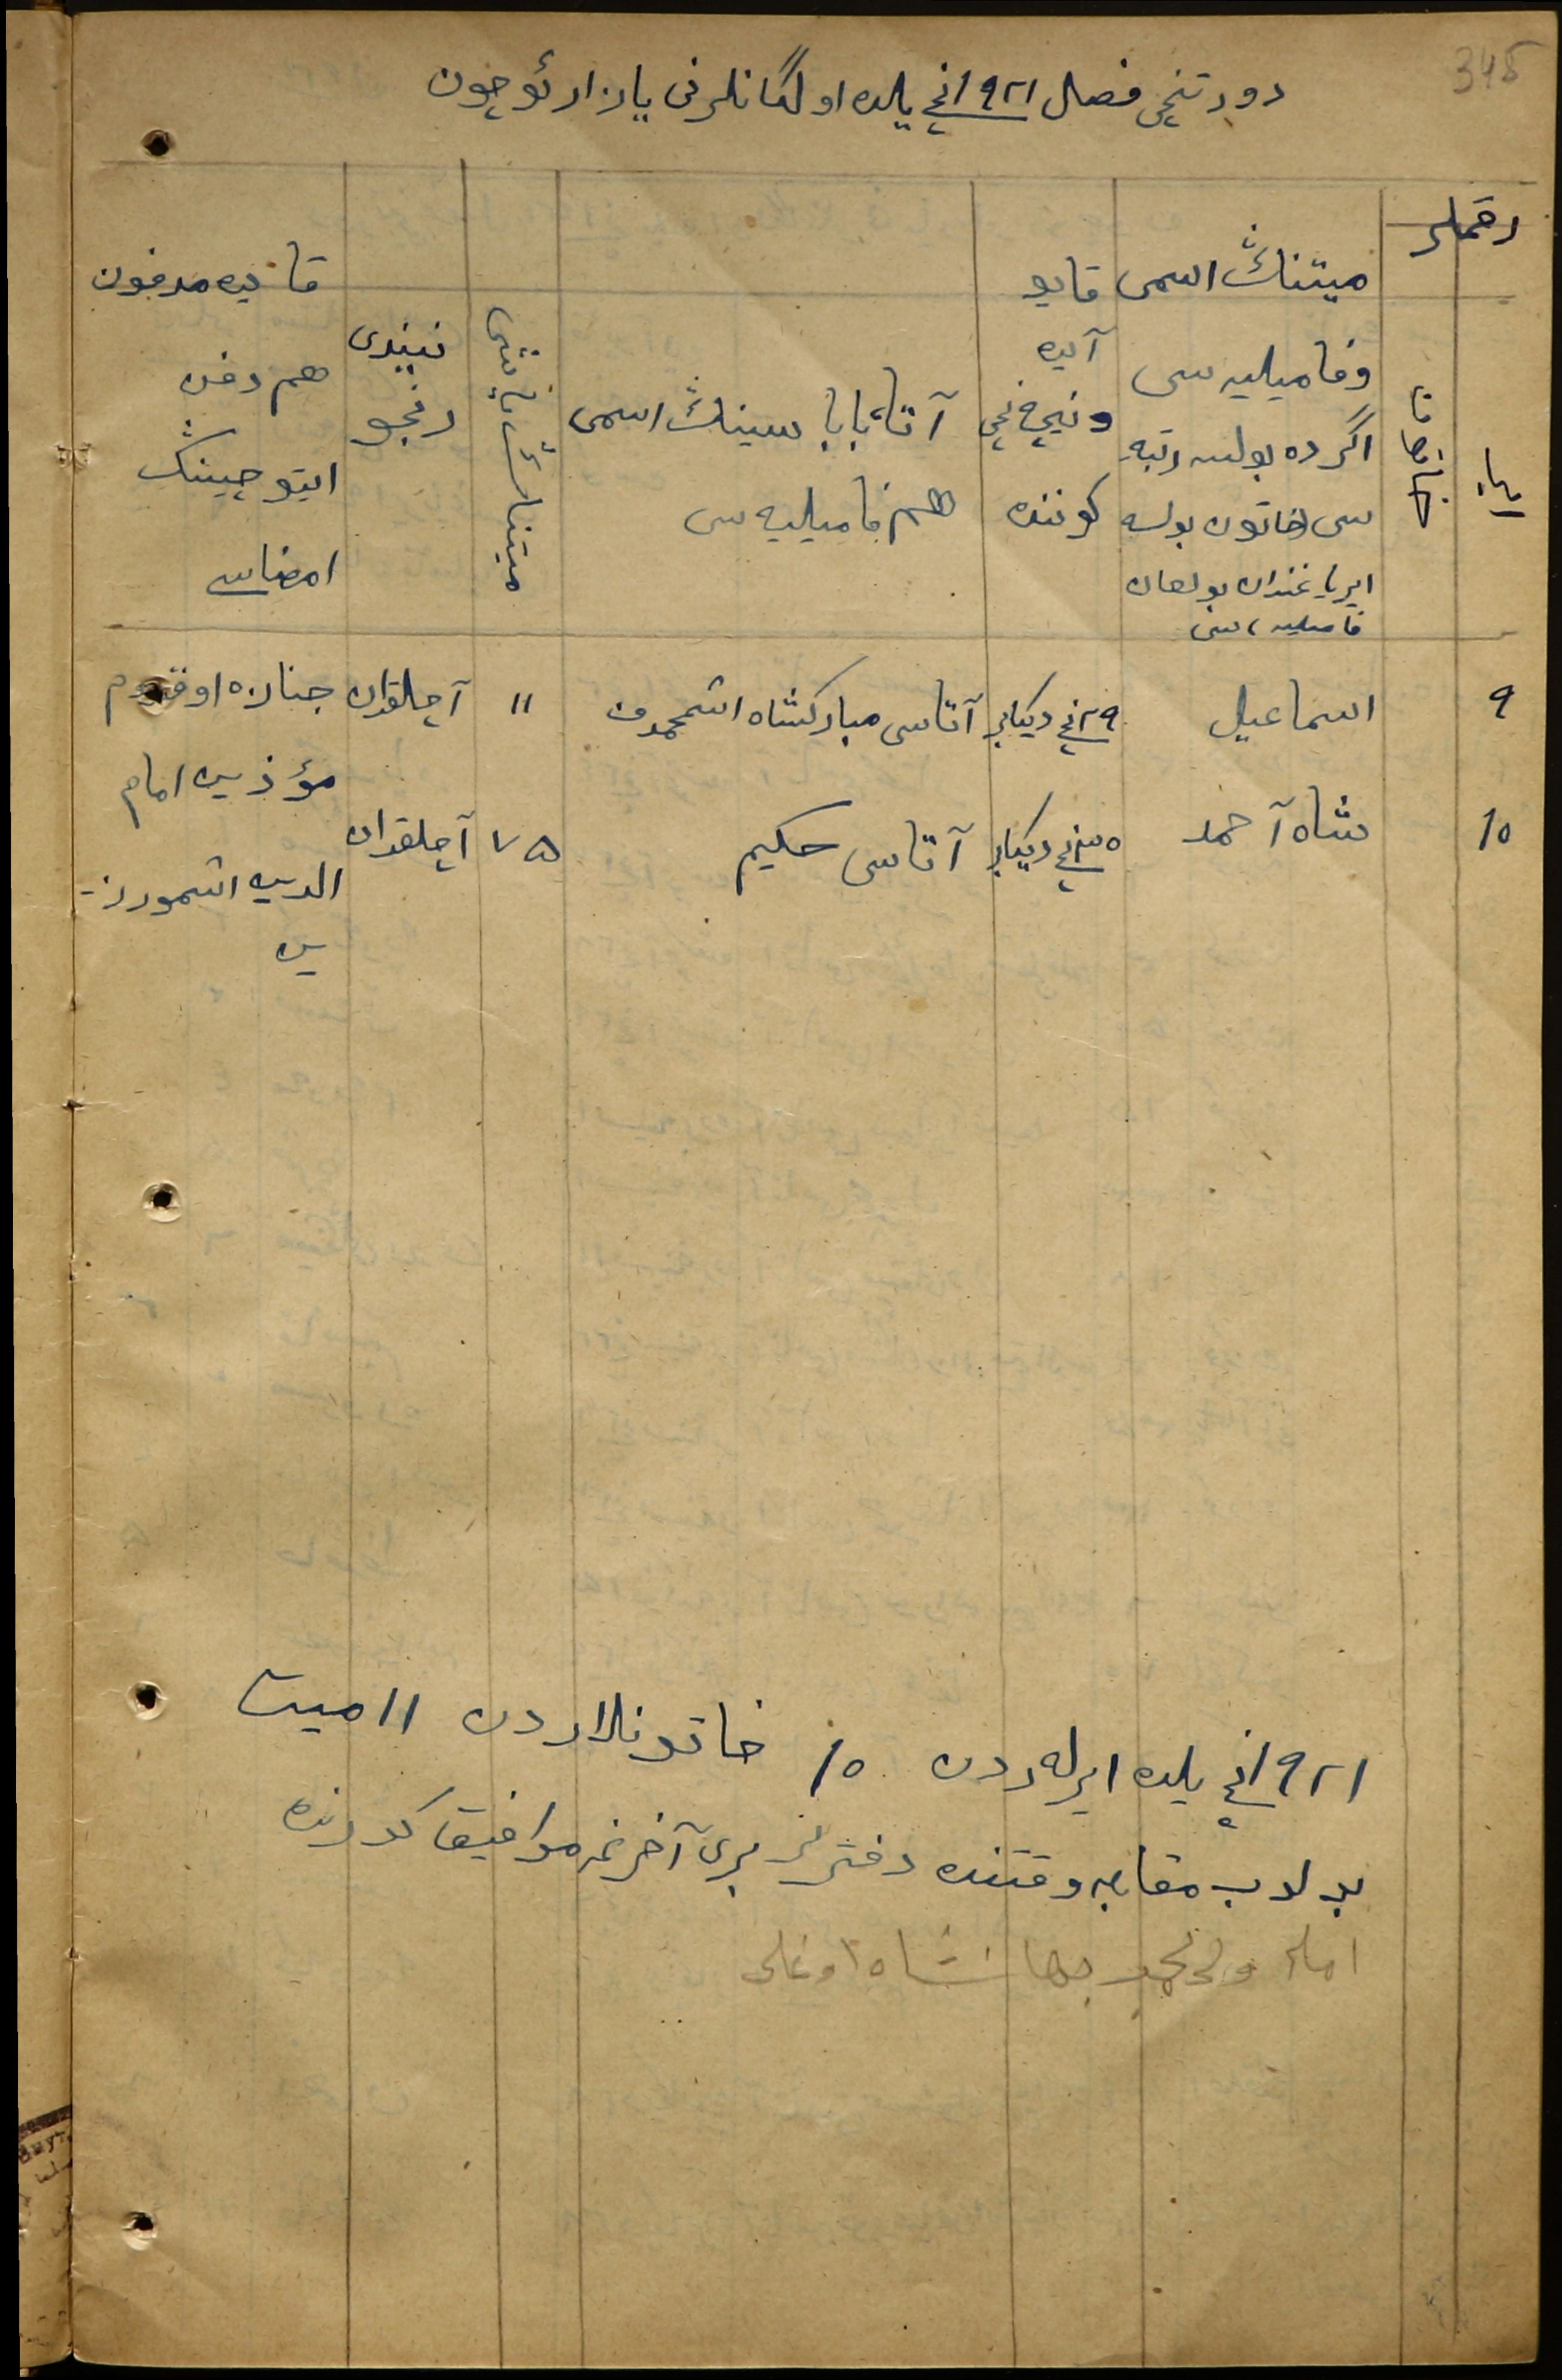 345
دورتنچی فصل ۱۹۲۱نچی یلده اولگانلرنی یازار ئوچون
رقملر
میتنڭ اسمی
وفامیلیه سی
اگرده بولسه رتبه
سی خاتون بولسه
ایرنڭ غندان بولغان
فامیلیه سی
قایو
آیده
ونیچه نچی
کوننده
آتا، بابا سینڭ اسمی
هم فامیلیه سی
میتنڭ یاشی
نیندی
رنجو
قایده مدفون
هم دفن
ایتوچینڭ
امضاسی
ایر
خاتون
۹ اسماعیل ۲۹نچی دیکابر آتاسی مبارکشاه ایشمحمدوف ۱۱ آچلقدان جنازه اوقدوم
مؤذین امام
۱۰ شاه آحمد ۳۰نچی دیکابر آتاسی حکیم ۷۵ آچلقدان
الدین ایشموورز-
ین
۱۹۲۱نچی یلده ایرلردن ۱۰ خاتونلاردن ۱۱ میت
بولوب مقابله وقتنده دفترلر بری آخرغه موافیقا کورنده
امام ولی محمد جهانشاه اوغلی